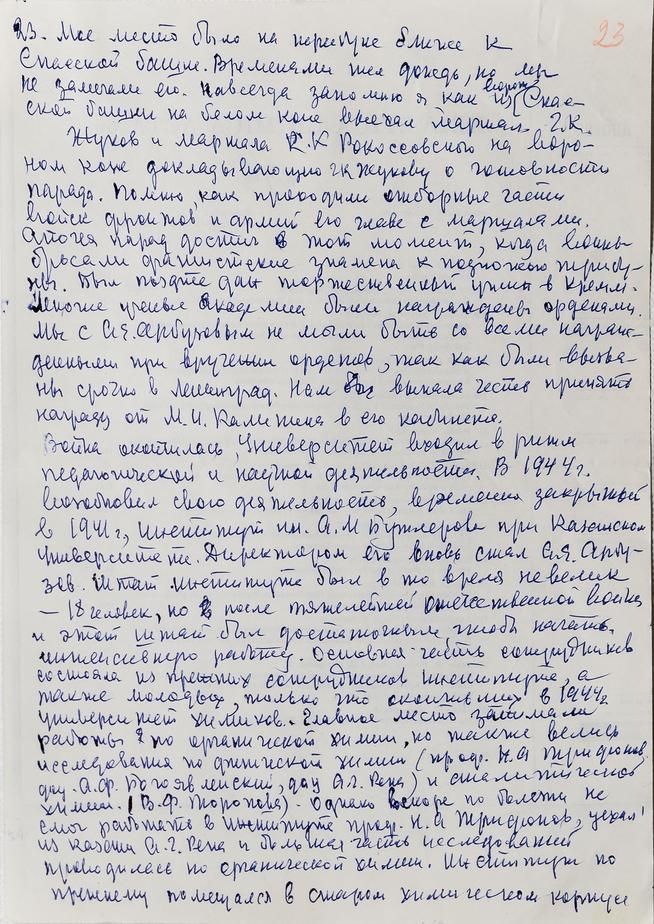 23. Мое место было на трибуне ближе к
23
Спасской башне. Временами шел дождь, но мы
не замечали его. Навсегда запомню я как из ворот Спас-
ской башни на белом коне выехал маршал Г.К.
Жуков и маршала К.К Рокоссовского на воро-
ном коне докладывающего Г.К Жукову о готовности
парада. Помню, как проходили отборные части
войск фронтов и армий во главе с маршалами.
Апогея парад достиг в тот момент, когда воины
бросали фашистские знамена к подножью трибу-
ны. Был позднее дан торжественный прием в Кремле.
Многие ученые Академии были награждены орденами.
Мы с А.Е.Арбузовым не могли быть со всеми награж-
денными при вручении орденов, так как были вызва-
ны срочно в Ленинград. Нам выпала честь принять
награду от М.И. Калинина в его кабинете.
Война окончилась, Университет входил в ритм
педагогической и научной деятельности. В 1944г.
возобновил свою деятельность, временно закрытый
в 1941г, институт им. А.М Бутлерова при Казанском
Университете. Директором его вновь стал А.Е. Арбу-
зов. Штат института был в то время невелик
— 18 человек, но после тяжелейшей отечественной войны
и этот штат был достаточным чтобы начать
интенсивную работу. Основная часть сотрудников
состояла из прежних сотрудников института, а
также молодых, только что окончивших в 1944г.
университет химиков. Главное место занимали
работы по органической химии, но также велись
исследования по физической химии (проф. Н.А Трифонов,
доц. А.Ф. Богоявленский, доц А.Г. Репа) и аналитической
химии. (В.Ф. Торопова). Однако вскоре по болезни не
смог работать в институте проф. Н.А Трифонов, уехал
из Казани А.Г. Репа и большая часть исследований
проводилась по органической химии. Институт по
прежнему помещался в старом химическом корпусе